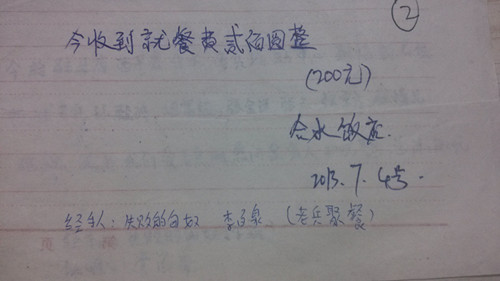 ②
今收到就餐费贰佰圆整
(200元)
合水饭店.
2013.7.4号.
经手人: 失败的自如 李 泉 (老兵聚餐)